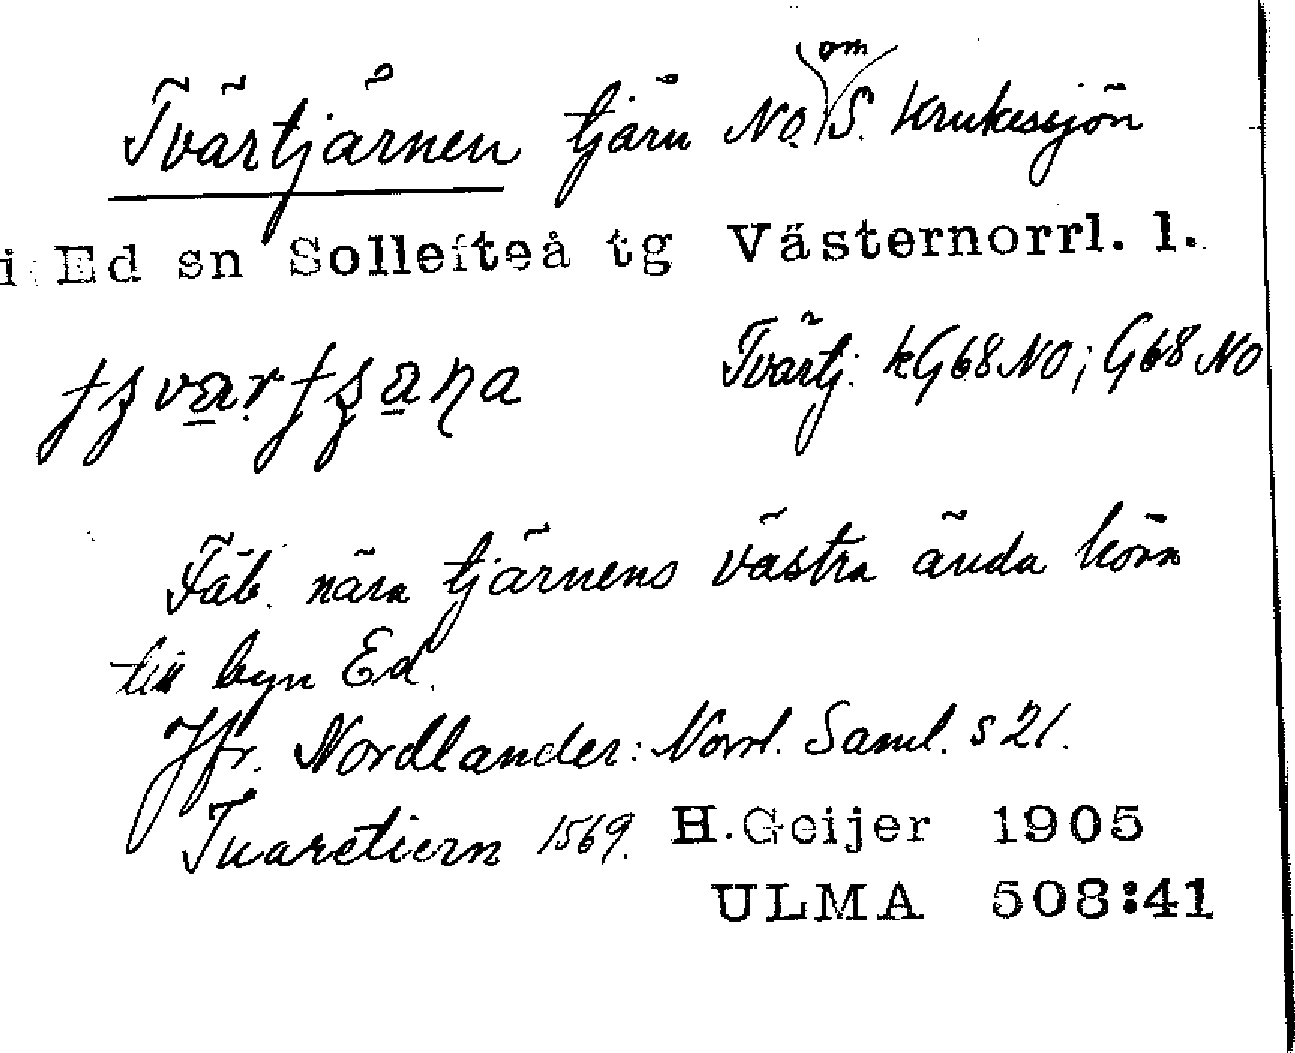 Tvärtjärnen tjärn NO. om S. Krukesjön
i Ed sn Sollefteå tg Västernorrl. l.
Tvärtj. kG68NO; G68 NO
Fäb. nära tjärnens västra ända hörn
till byn Ed.
Jfr. Nordlander: Norrl. Saml. s 21.
Tuaretiern 1569. H.Geijer 1905
ULMA 508:41